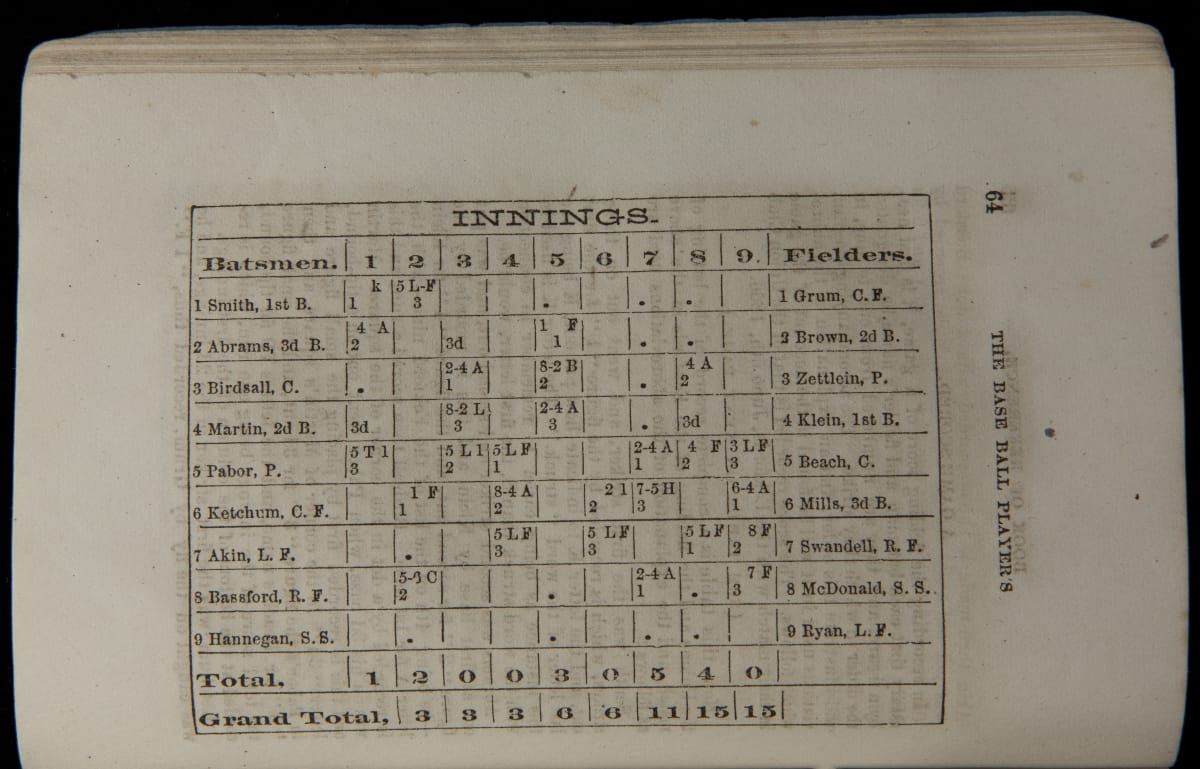 64 THE BASE BALL PLAYER'S
INNINGS.
Batsmen. 1 2 3 4 5 6 7 8 9. Fielders.
k 5 L-F
1 Smith, 1st B. 1 3 . . . 1 Grum, C. F.
4 A 1 F
2 Abrams, 3d B. 2 3d 1 . . 2 Brown, 2d B.
2-4 A 8-2 B 4 A
3 Birdsall, C. . 1 2 . 2 3 Zettlein, P.
8-2 L 2-4 A
4 Martin, 2d B. 3d 3 3 . 3d 4 Klein, 1st B.
5 T 1 5 L 1 5 L F 2-4 A 4 F 3 L F
5 Pabor, P. 3 2 1 1 2 3 5 Beach, C.
1 F 8-4 A 2 1 7-5 H 6-4 A
6 Ketchum, C. F. 1 2 2 3 1 6 Mills, 3d B.
5 L F 5 L F 5 L F 8 F
7 Akin, L. F. . 3 3 1 2 7 Swandell, R. F.
C 2-4 A 7 F
8 Bassford, R. F. 2 . 1 . 3 8 McDonald, S. S.
9 Hannegan, S. S. . . . . 9 Ryan, L. F.
Total, 1 2 0 0 3 0 5 4 0
Grand Total, 3 3 3 6 6 11 15 15